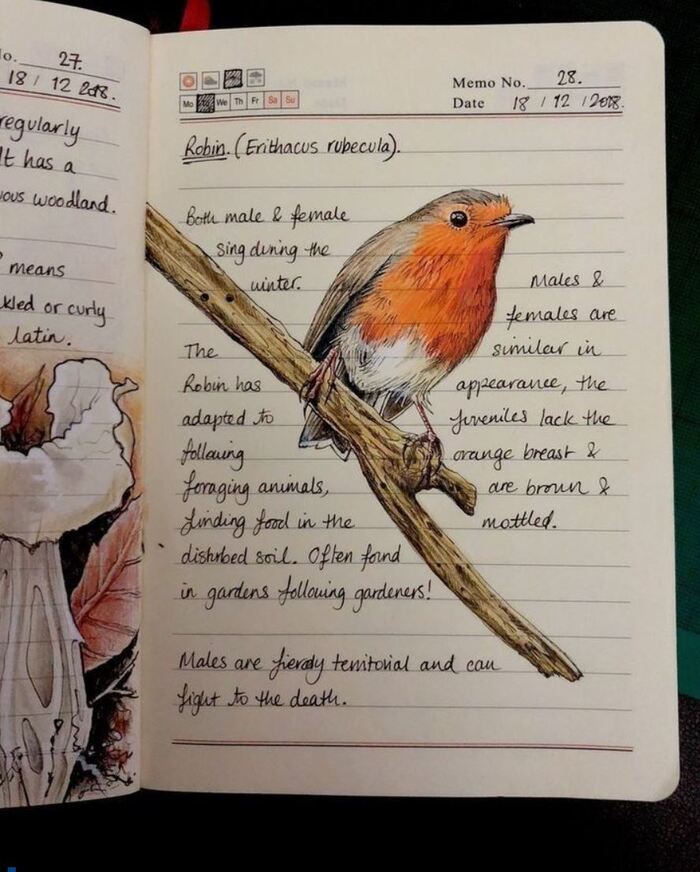 No. 27.
18 / 12 2018.
regularly
It has a
woodland.
means
or curly
latin.
Mo We Th Fr Sa Su
Memo No. 28.
Date 18 / 12 / 2018.
Robin. (Erithacus rubecula).
Both male & female
sing during the
winter.
Males &
females are
similar in
appearance, the
juveniles lack the
orange breast &
are brown &
mottled.
The
Robin has
adapted to
following
foraging animals,
finding food in the
disturbed soil. Often found
in gardens following gardeners!
Males are fiercly territorial and can
fight to the death.